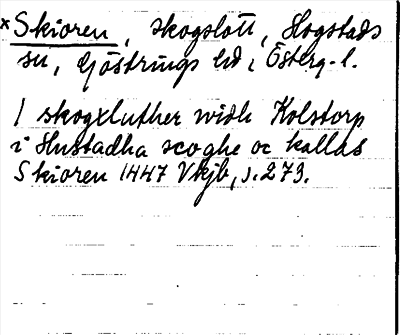 ×Skioren, skogslott, Hogstads
sn, Göstrings hd i Österg.l.
1 skogxluther widh Kolstorp
i Hustadha scoghe oc kallas
Skioren 1447 Vkjb, s.273.